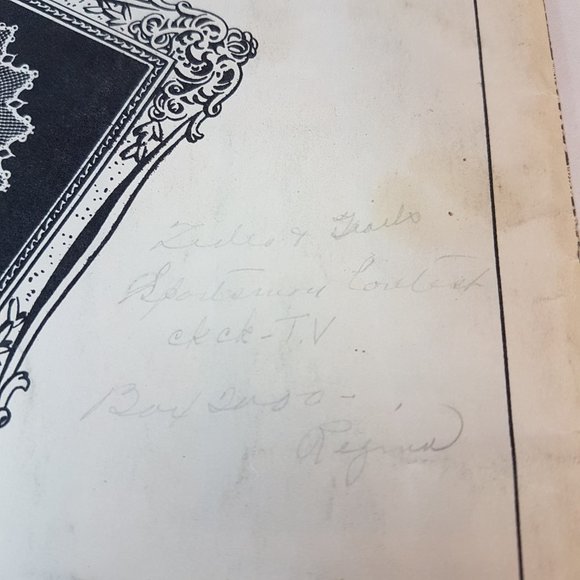 Tides & Trails
Sportsmen Contest
CKCK-T.V
Box 2000 -
Regina